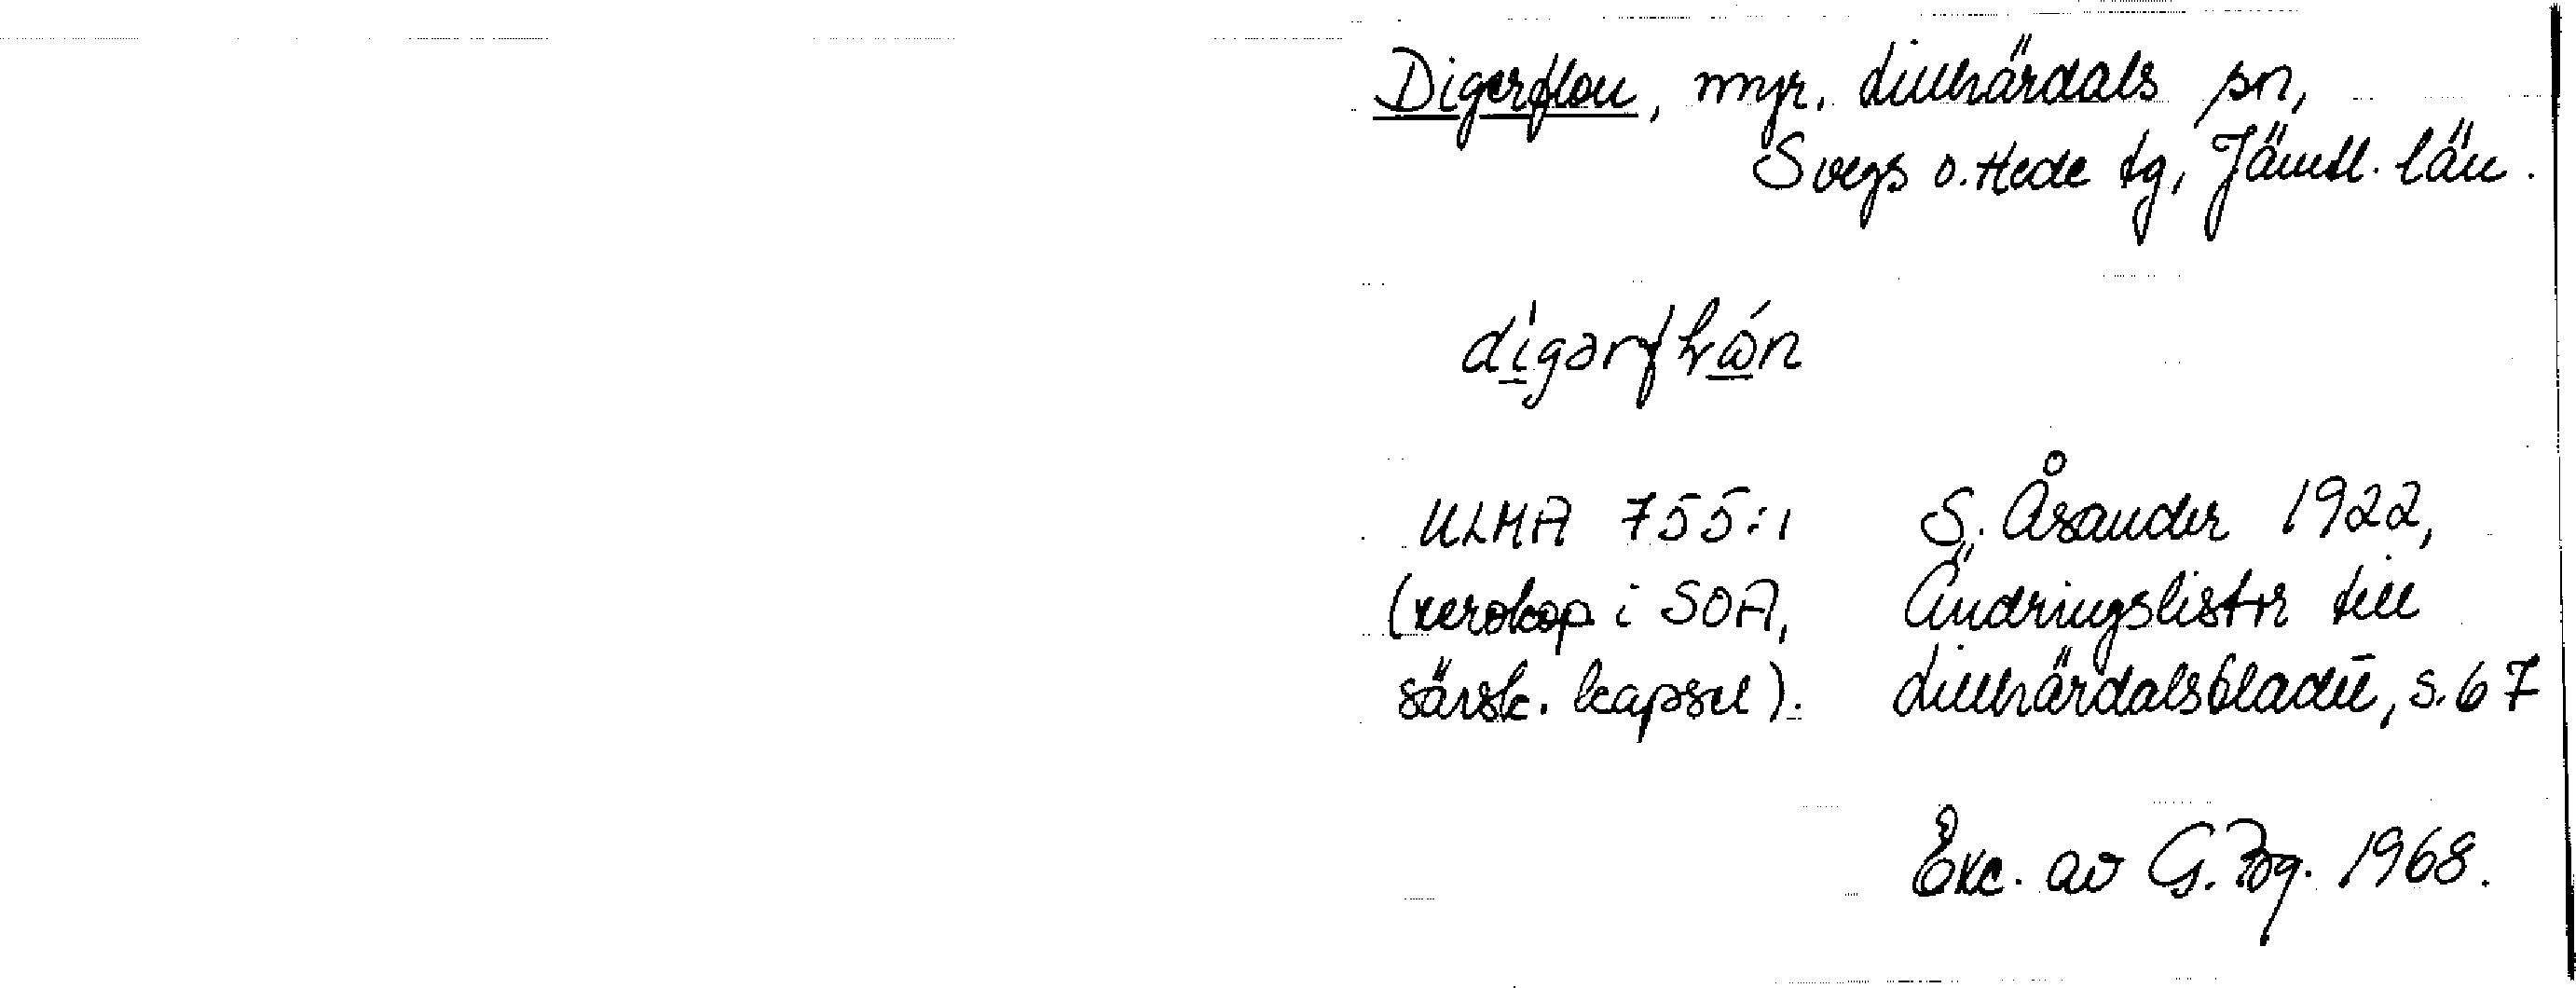 Digerflon, myr. Lillhärdals sn,
Svegs o. Hede tg, Jämtl. län.
ULMA 755:1 S. Åsander 1922,
(xerokop i SOA, Ändringslistor till
särsk. kapsel). Lillhärdalsbladet, s. 67
Exc. av G. Bg. 1968.